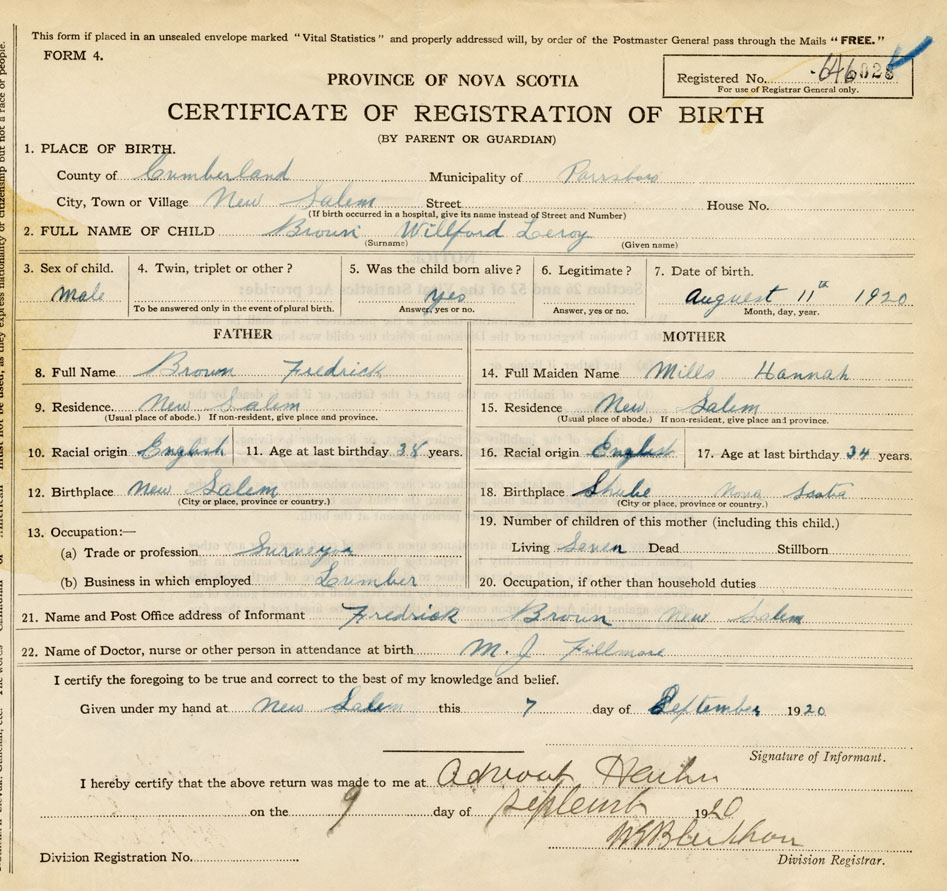 This form if placed in an unsealed envelope marked "Vital Statistics" and properly addressed will, by order of the Postmaster General pass through the Mails "FREE."
FORM 4.
PROVINCE OF NOVA SCOTIA
Registered No.
For use of Registrar General only.
CERTIFICATE OF REGISTRATION OF BIRTH
(BY PARENT OR GUARDIAN)
1. PLACE OF BIRTH.
County of Cumberland Municipality of Parrsboro
City, Town or Village New Salem Street House No.
(If birth occurred in a hospital, give its name instead of Street and Number)
2. FULL NAME OF CHILD Brown Willford Leroy
(Surname) (Given name)
3. Sex of child. 4. Twin, triplet or other? 5. Was the child born alive? 6. Legitimate? 7. Date of birth.
Male yes August 11th 1920
To be answered only in the event of plural birth. Answer, yes or no. Answer, yes or no. Month, day, year.
FATHER MOTHER
8. Full Name Brown Fredrick 14. Full Maiden Name Mills Hannah
9. Residence New Salem 15. Residence New Salem
(Usual place of abode.) If non-resident, give place and province. (Usual place of abode.) If non-resident, give place and province.
10. Racial origin English 11. Age at last birthday 38 years. 16. Racial origin English 17. Age at last birthday 34 years.
12. Birthplace New Salem 18. Birthplace Shube Nova Scotia
(City or place, province or country.) (City or place, province or country.)
13. Occupation:— 19. Number of children of this mother (including this child.)
(a) Trade or profession Surveyor Living Seven Dead Stillborn
(b) Business in which employed Lumber 20. Occupation, if other than household duties
21. Name and Post Office address of Informant Fredrick Brown New Salem
22. Name of Doctor, nurse or other person in attendance at birth M. J Fillmore
I certify the foregoing to be true and correct to the best of my knowledge and belief.
Given under my hand at New Salem this 7 day of September 1920
Signature of Informant.
I hereby certify that the above return was made to me at
on the 9 day of 1920
Division Registration No. Division Registrar.